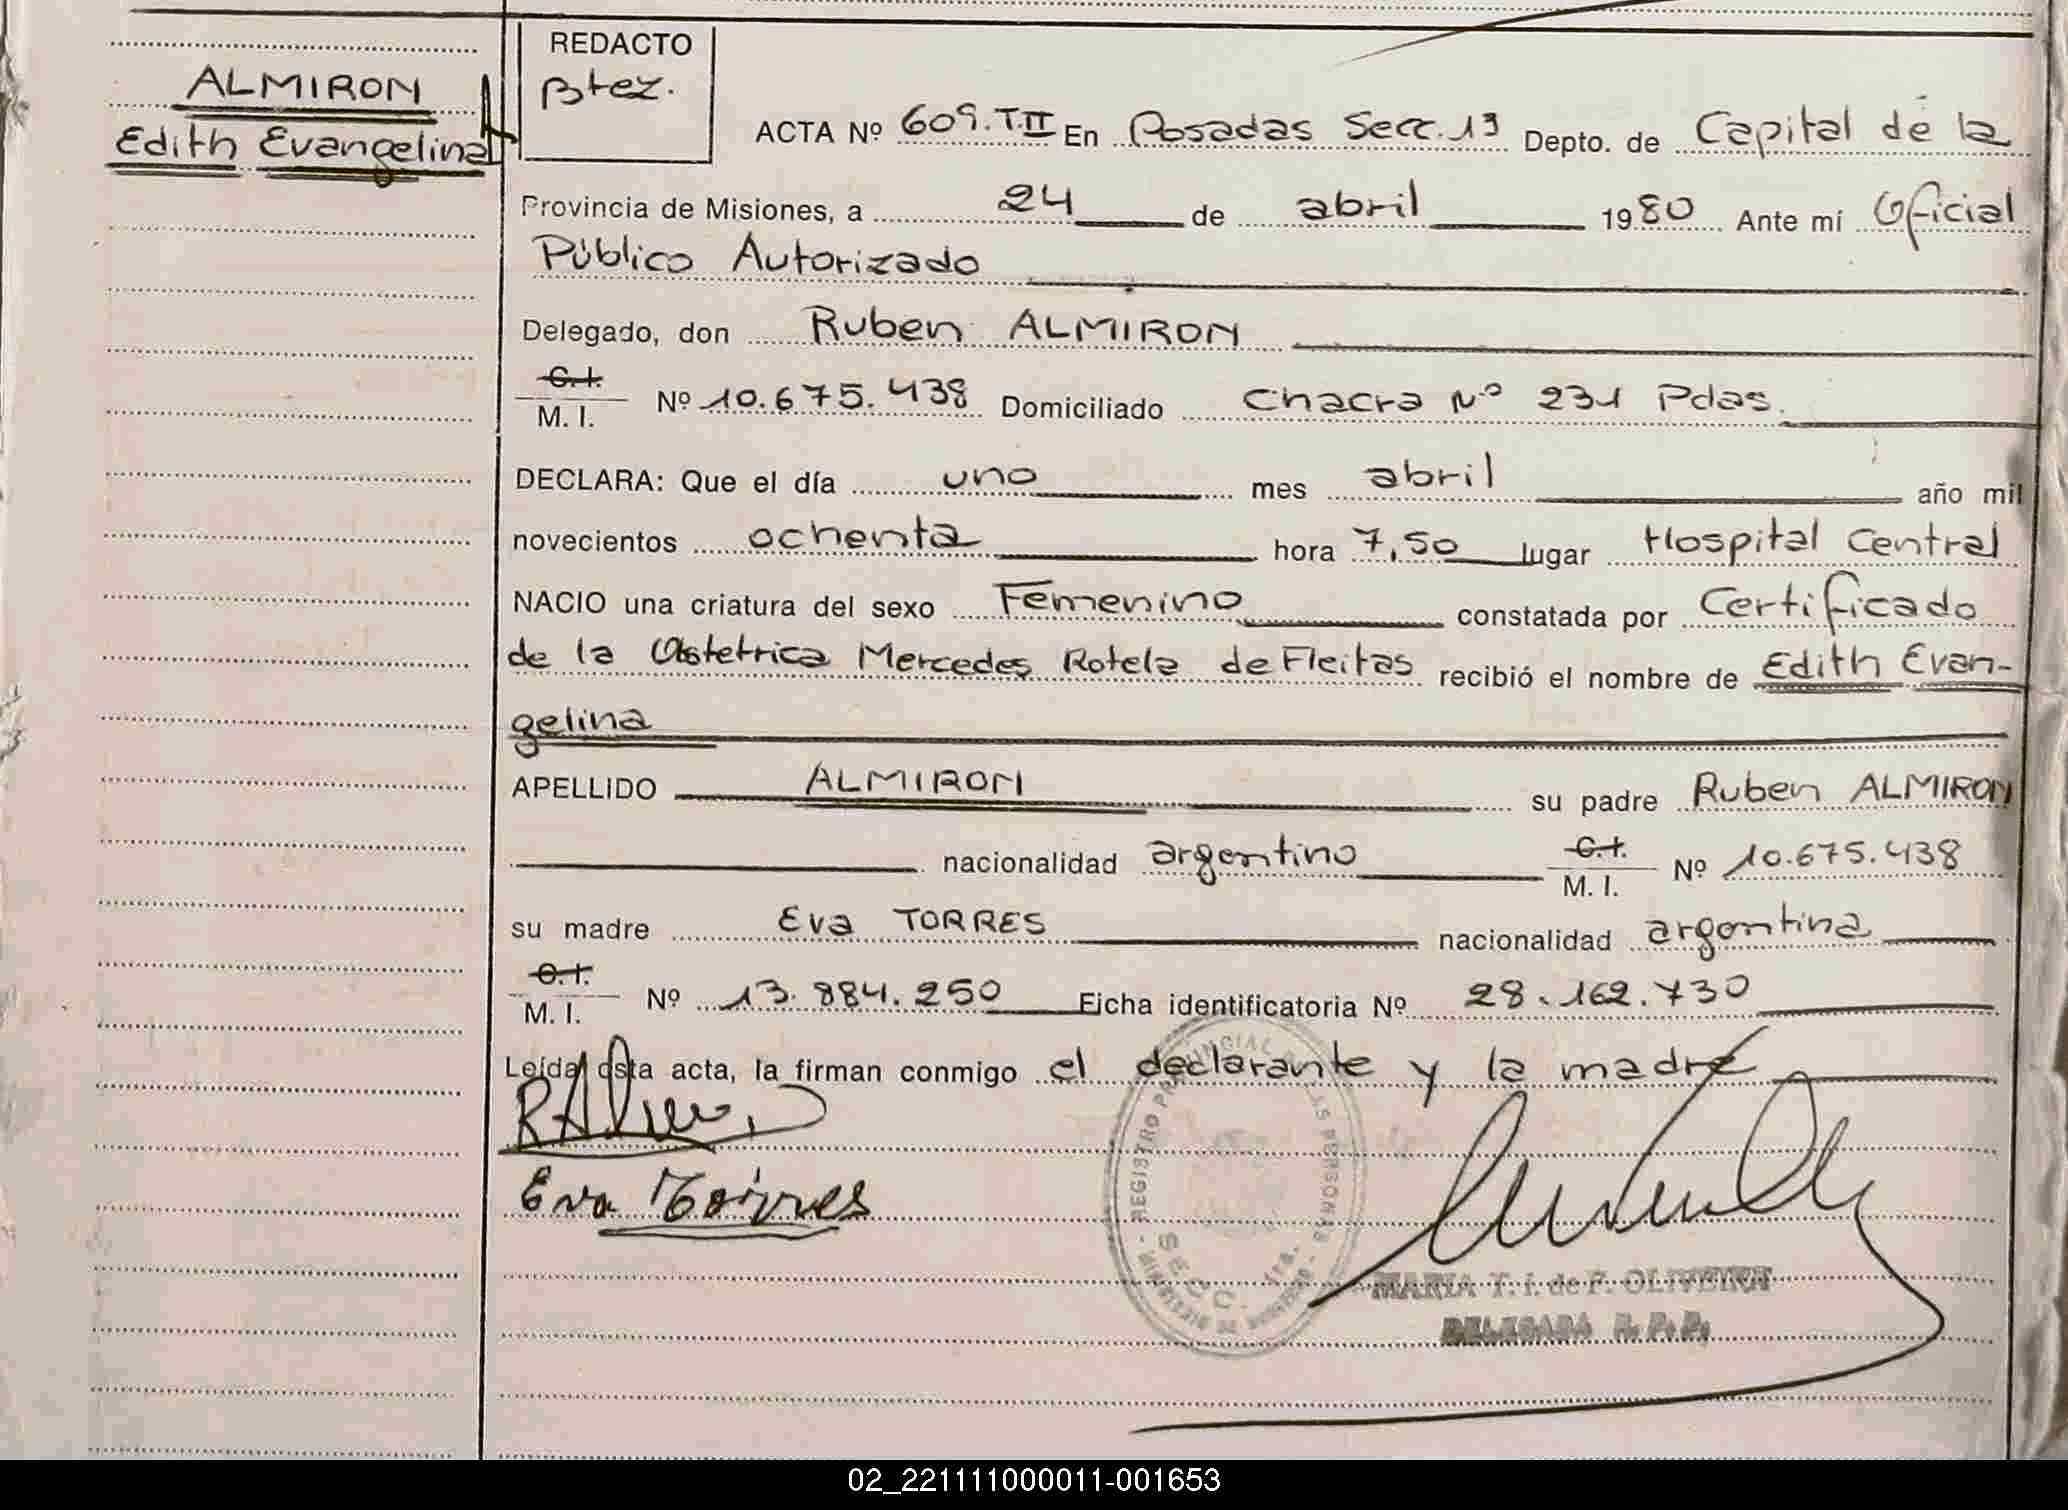 ALMIRON
Edith Evangelina
REDACTO
Btez.
ACTA Nº 609.T.II En Posadas Secc. 1ª Depto. de Capital de la
Provincia de Misiones, a 24 de abril 1980 Ante mí Oficial
Público Autorizado
Delegado, don Ruben ALMIRON
C.I.
M. I. Nº 10.675.438 Domiciliado Chacra Nº 231 Pdas.
DECLARA: Que el día uno mes abril año mil
novecientos ochenta hora 7,50 lugar Hospital Central
NACIO una criatura del sexo Femenino constatada por Certificado
de la Obstetrica Mercedes Rotela de Fleitas recibió el nombre de Edith Evan-
gelina
APELLIDO ALMIRON su padre Ruben ALMIRON
nacionalidad argentino C.I.
M. I. Nº 10.675.438
su madre Eva TORRES nacionalidad argentina
C.I.
M. I. Nº 13.884.250 Ficha identificatoria Nº 28.162.730
Leída esta acta, la firman conmigo el declarante y la madre
Eva Torres
REGISTRO PROVINCIAL DE LAS PERSONAS
SECC. 1ra.
MARIA T. I. de F. OLIVEIRA
DELEGADA R. P. P.
02_221111000011-001653